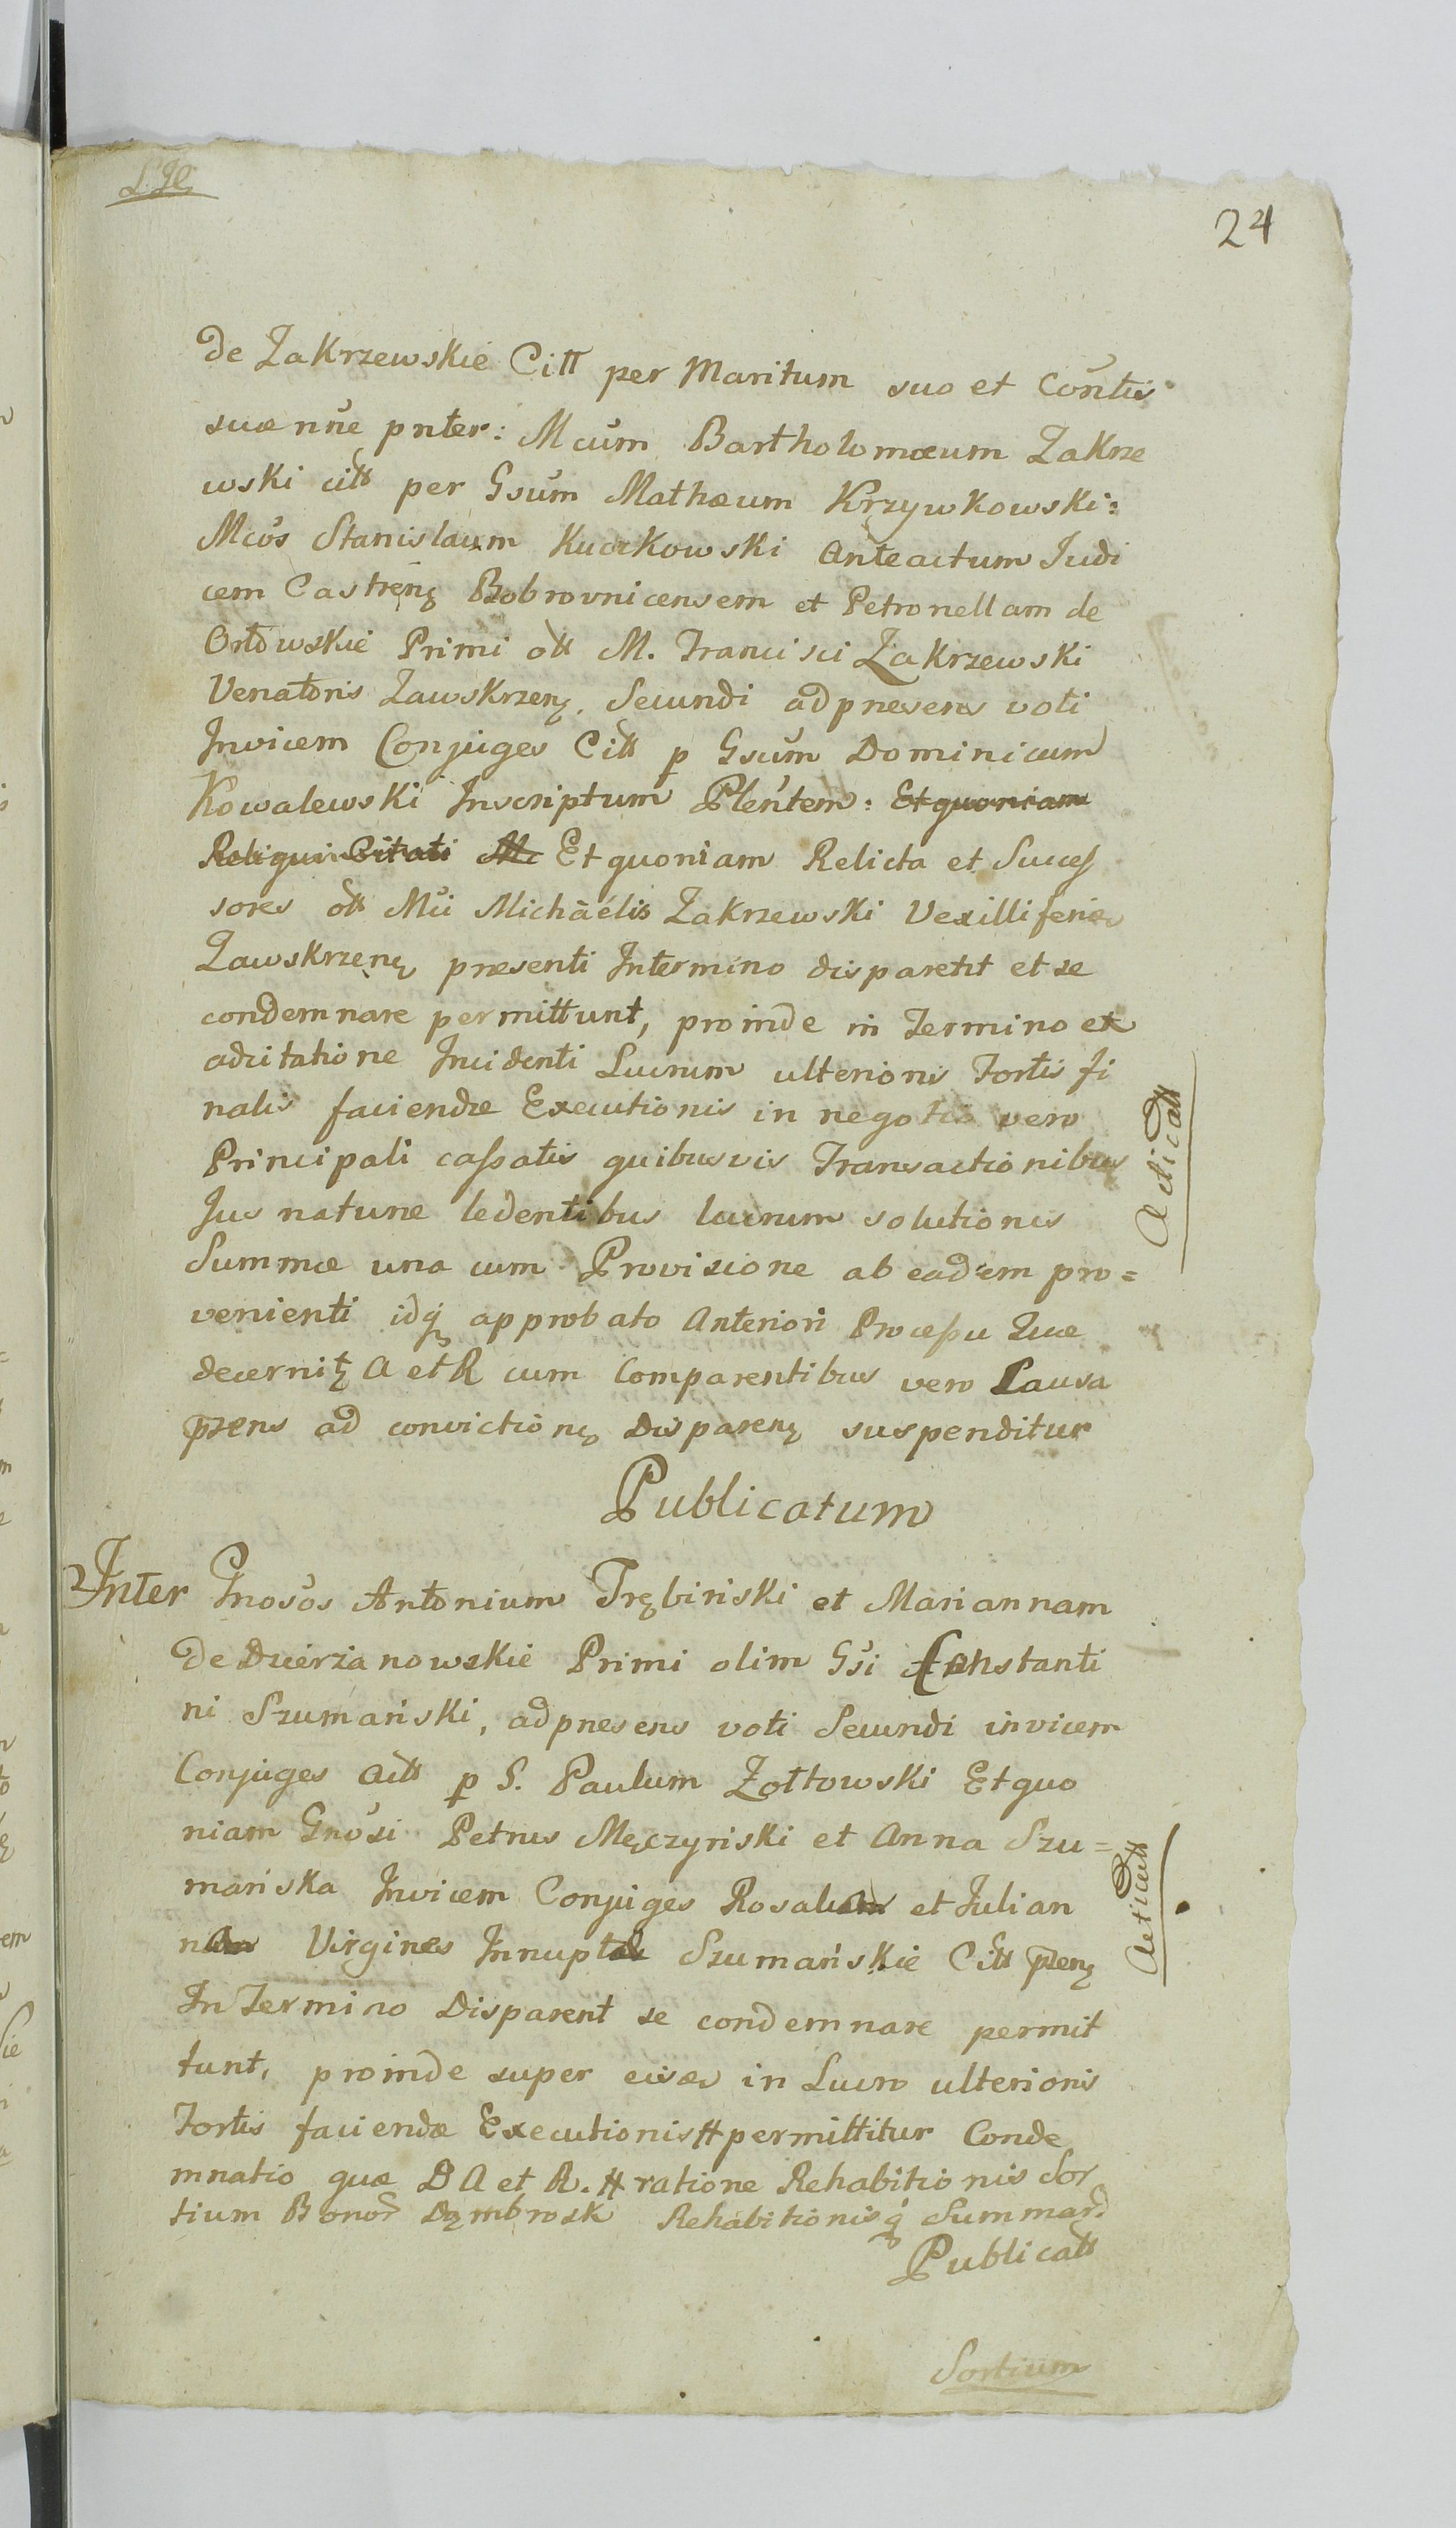 24
de Zakrzewskie Citt per Maritum suo et Contis
suæ nñe pnter: Mcum Bartholomæum Zakrze
wski citt per Gsum Mathæum Krzywkowski:
Mcos Stanislaum Kuczkowski Anteactum Judi
cem Castreng Bobrovnicensem et Petronellam de
Orłowskie Primi ott M. Francisci Zakrzewski
Venatoris Zawskrzeng. Secundi adpresens voti
Invicem Conjuges Citt p Gsum Dominicum
Kowalewski Inscriptum Plentem: Et quoniam
Reliqui Citati M. Et quoniam Relicta et Succes
sores ott Mci Michäelis Zakrzewski Vexilliferi
Zawskrzeng presenti Intermino disparent et se
condemnare permittunt, proinde in Termino et
adcitatione Incidenti Lucrum ulterioris Fortis fi
nalis faciendæ Executionis in negotio vero
Principali cassatis quibusvis Transactionibus
Jus nature ledentibus lucrum solutionis
Summæ una cum Provisione ab eadem pro=
venienti idq approbato Anteriori Processu Quæ
decernit A et R cum Comparentibus vero Causa
przens ad conviction Dispareng suspenditur
Publicatum
Inter Gnosos Antonium Trębiński et Mariannam
de Dzierżanowskie Primi olim Gsi Constanti
ni Szumański, adpresens voti Secundi invicem
Conjuges Actt p G. Paulum Zołtowski Et quo
niam Gnosi Petrus Męczyński et Anna Szu=
mańska Invicem Conjuges et Julian
Virgines Szumańskie Citt przeng
In Termino Disparent se condemnare permit
tunt, proinde super eisd in Lucro ulterioris
Fortis faciendæ Executionis # permittitur Conde
mnatio quæ D A et R. # ratione Rehabitionis Sor
tium Bonor Dąmbrosk Rehabitionisq Summar
Publicatt
Sortium